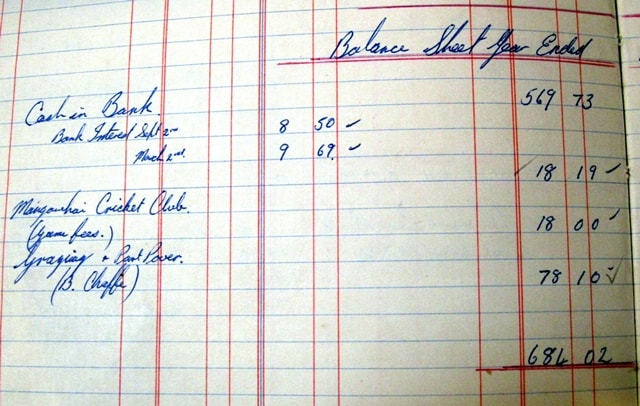 Balance Sheet Year Ended
Cash in Bank. 569 73
Bank Interest Sept 2nd 8 50 ✓
March 2nd. 9 69. ✓
18 19 ✓
Mangawhai Cricket Club. 18 00 ✓
(Game fees.)
Grazing + Power. 78 10 ✓
(B. Chaffe)
684 02